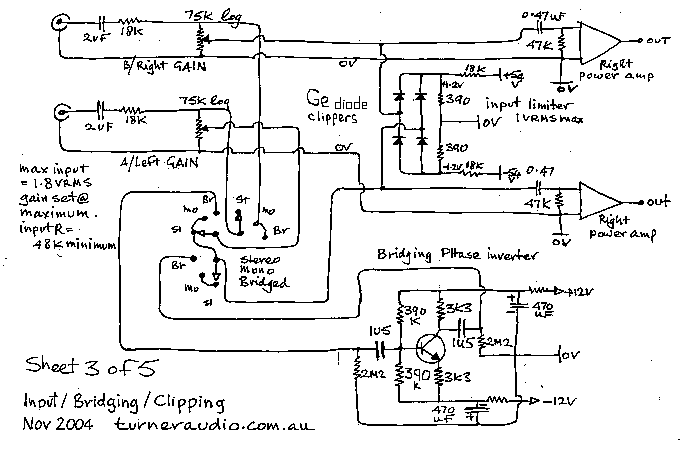 75K log
2uF
18K
B/Right GAIN
0V
0.47uF
47K
OUT
Right
power amp
0V
75K log
2uF
18K
A/Left GAIN
0V
Ge diode
clippers
18K
390
input limiter
1VRMS max
0V
390
18K
0.47
47K
out
Right
power amp
0V
max input
= 1.8VRMS
gain set@
maximum.
input R=
48K minimum
Br
mo
St
St
mo
Br
Br
mo
St
stereo
mono
Bridged
Bridging PHase inverter
390
K
3K3
1U5
1U5
2M2
470
uF
+12V
0V
2M2
390
K
3K3
470
uF
-12V
Sheet 3 of 5
Input/Bridging/Clipping
Nov 2004 turneraudio.com.au